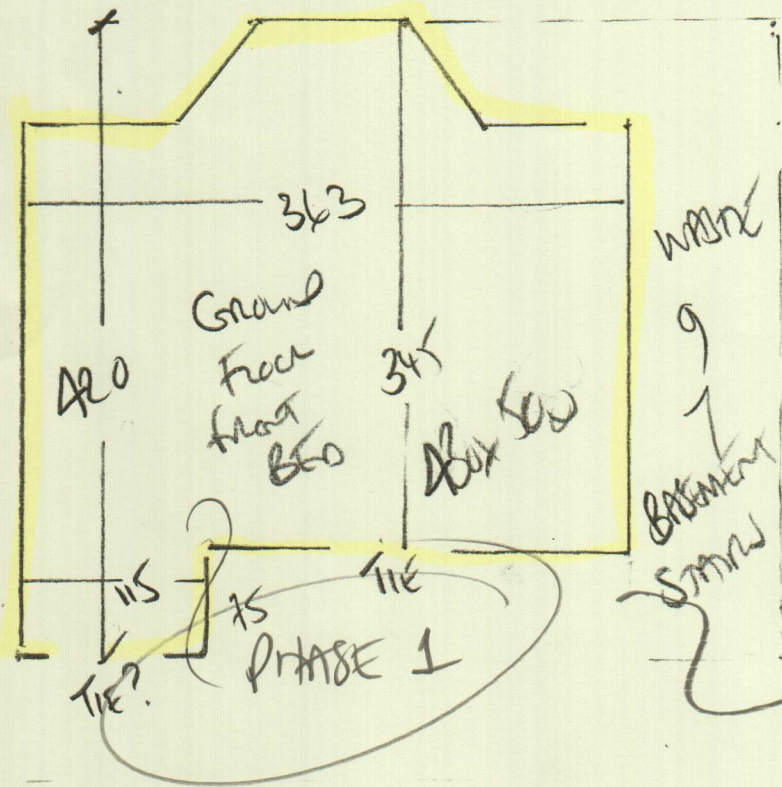 363
Ground
Floor
front
BED
420
345
ABOX 500
WASTE
9
BASEMENT
STAIRS
115
75
TIE
TIE?
PHASE 1